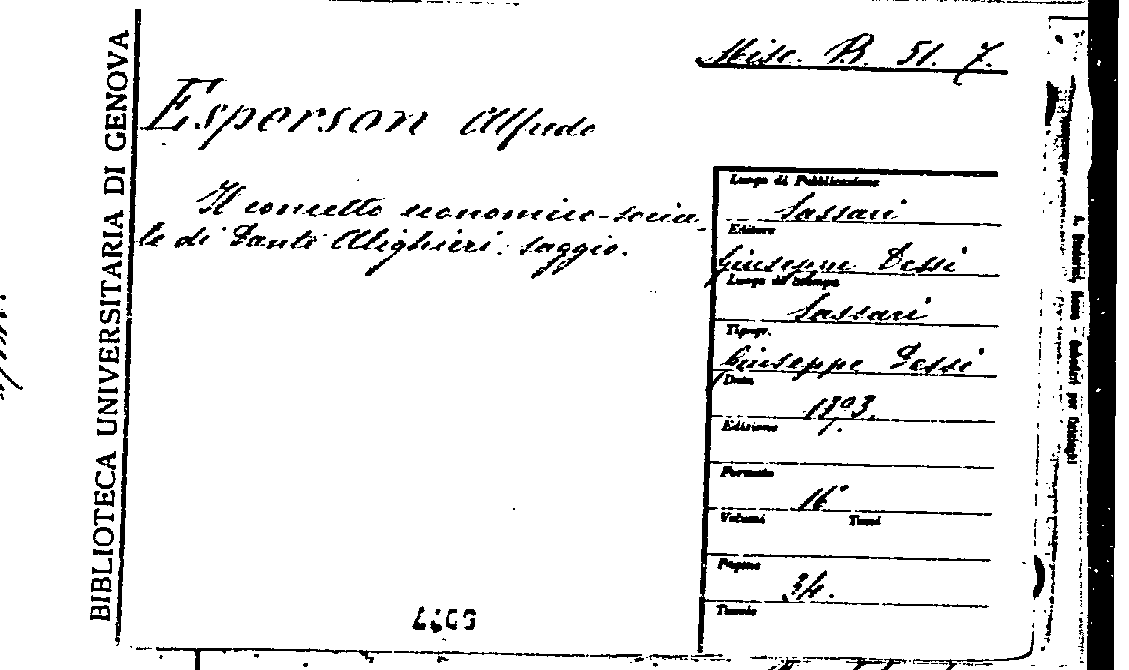 BIBLIOTECA UNIVERSITARIA DI GENOVA
Misc. B. 51. 7.
Esperson Alfredo
Il concetto economico-socia-
le di Dante Alighieri: saggio.
Luogo di Pubblicazione
Sassari
Editore
Giuseppe Dessi
Luogo di stampa
Sassari
Tipogr.
Giuseppe Dessi
Data
Edizione
Formato
16°
Volumi Tomi
Pagine
34.
Tavole